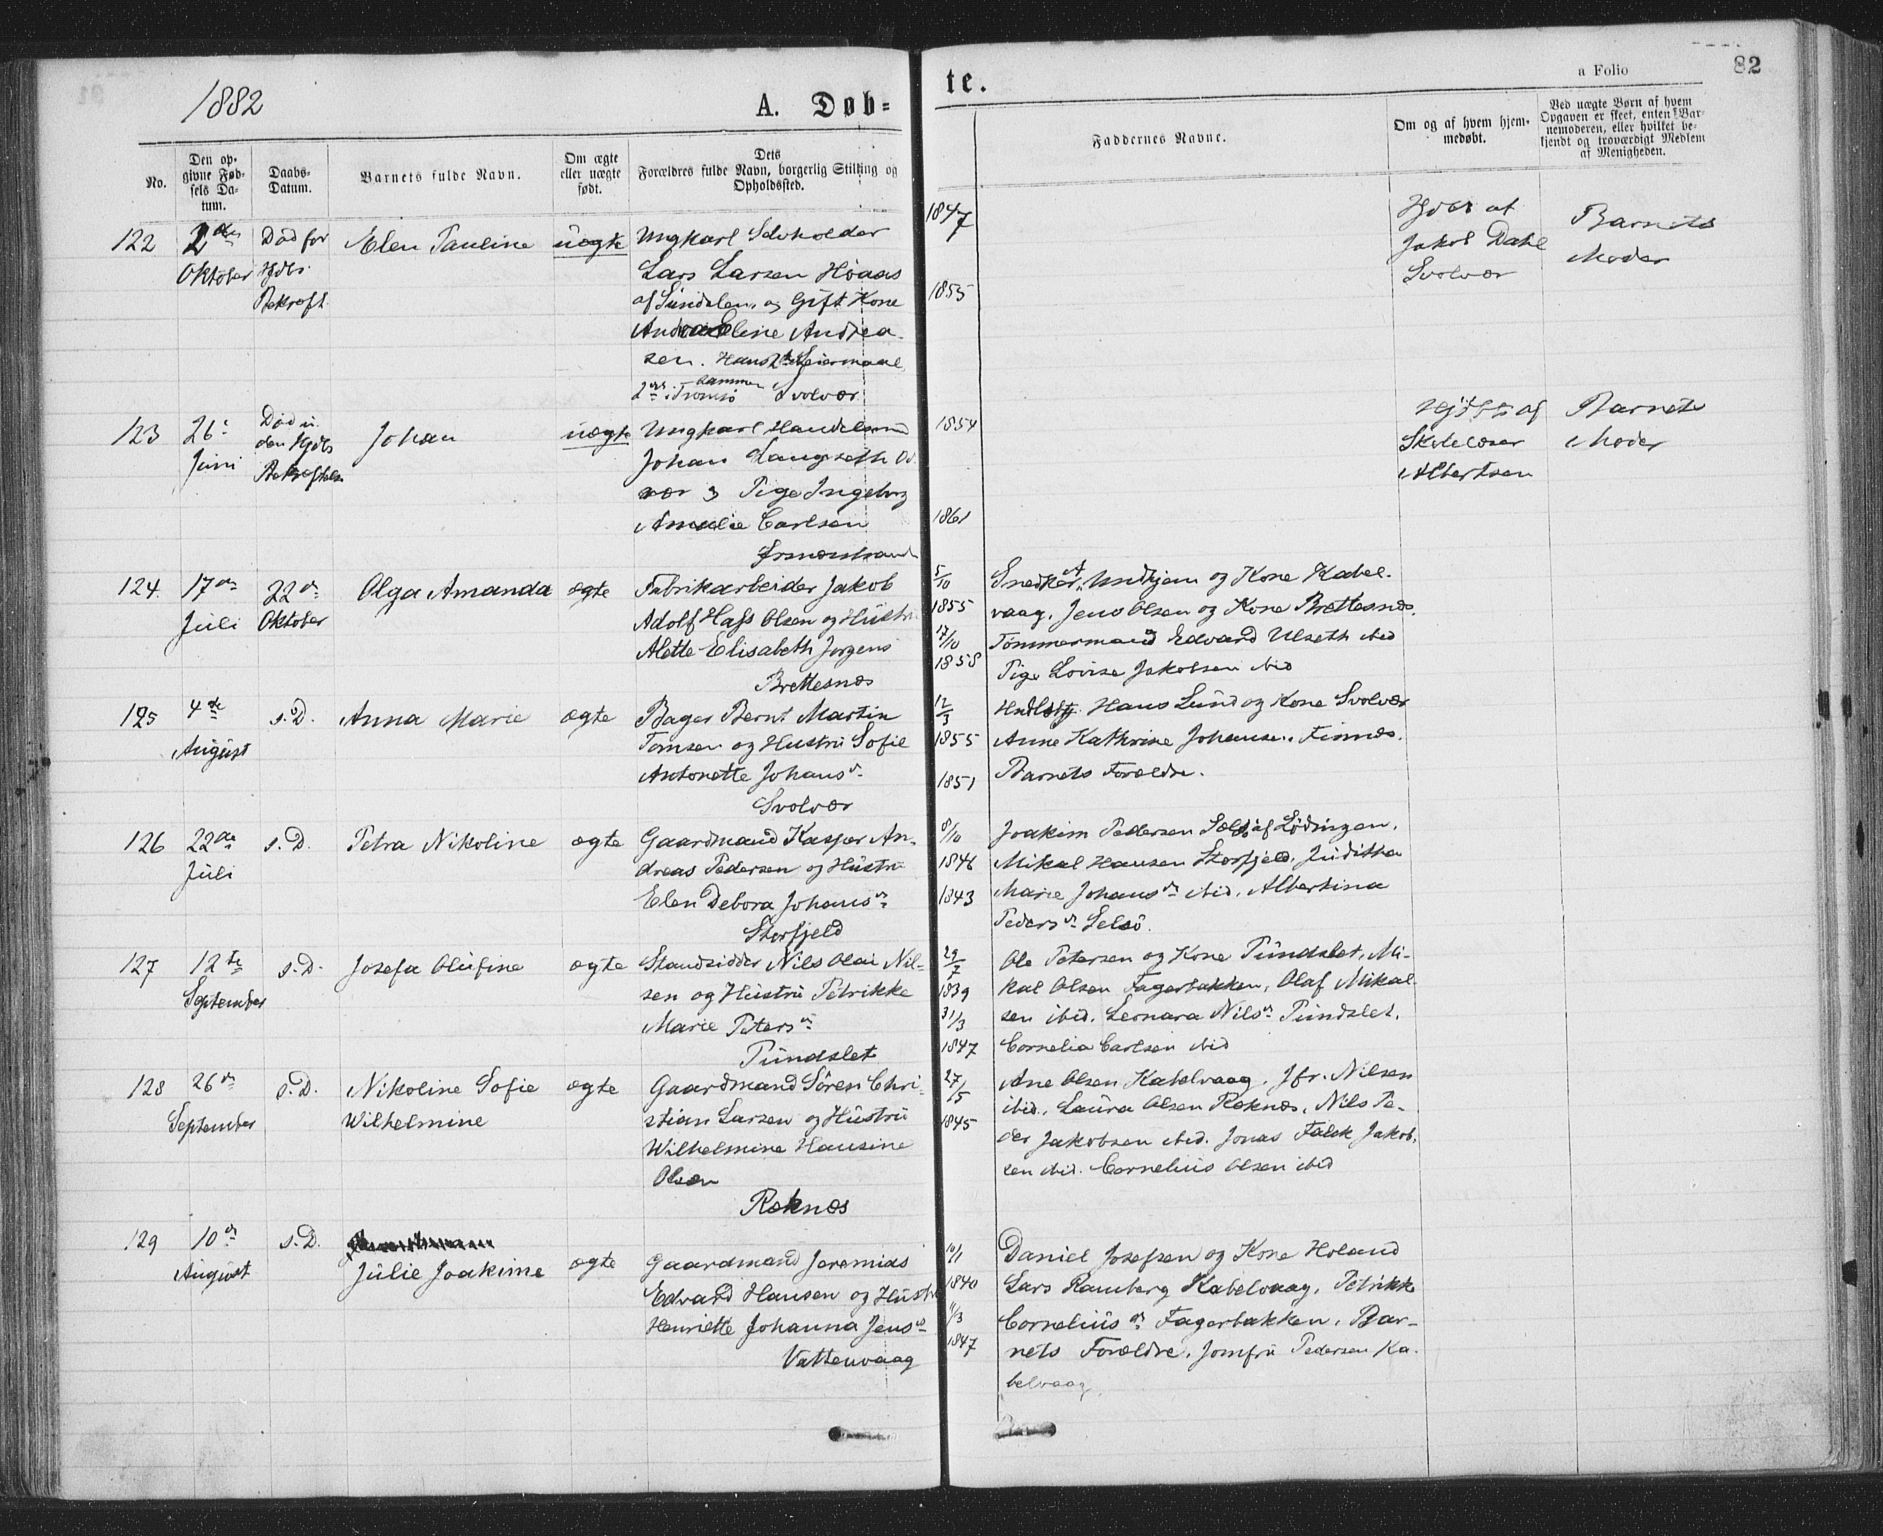 1882
A. Døb=
te.
a Folio
82
No.
Den op-
givne Fød-
sels Da-
tum.
Daabs-
Datum.
Barnets fulde Navn.
Om ægte
eller uægte
født.
Dets
Forældres fulde Navn, borgerlig Stilling og
Opholdssted.
Faddernes Navne.
Om og af hvem hjem-
medøbt.
Ved uægte Børn af hvem
Opgaven er skeet, enten Bar-
nemoderen, eller hvilket be-
kjendt og troværdigt Medlem
af Menigheden.
122 2den Oktober
Død før
Hjdbs
Bekræft
Elen Pauline
uægte
Ungkarl Selvholder
Lars Larsen Hoaas
af Sundalen, og Gift Kone
Eline Andrea
sen. Hans 2det Leiermaal
2det sammen Tromsø Svolvær
1847
1855
Hjdbt af
Jakob Dahl
Svolvær
Barnets
Moder
123 26i Juni
Død u.
den Hjdbs
Bekræftelse
Johan
uægte
Ungkarl Handelsmd
Johan Langseth Od
vær & Pige Ingeborg
Amalie Carlsen
Ørsnæsstrand
1854
1861
Hjdbt af
Skolelærer
Albertsen
Barnets
Moder
124. 17de Juli
22de Oktober
Olga Amanda
ægte
Fabrikarbeider Jakob
Adolf Hass Olsen og Hustru
Alette Elisabeth Jørgens
Brettesnæs
5/10
1855
17/10
1858
Snedker A. Undhjem og Kone Kabel-
vaag, Jens Olsen og Kone Brettesnæs.
Tømmermand Edvard Ulseth ibid
Pige Lovise Jakobsen ibid
125 4de August
s. D.
Anna Marie
ægte
Bager Bernt Martin
Tomsen og Hustru Sofie
Antonette Johansd.
Svolvær
12/3
1855
1851
Hans Lund og Kone Svolvær
Anne Kathrine Johansen. Finnæs.
Barnets Forældre.
126 22de Juli
s. D.
Petra Nikoline
ægte
Gaardmand Kasper An-
dreas Pedersen og Hustru
Elen Debora Johansd.
Storfjeld
8/10
1846
1843
Joakim Pedersen af Lødingen.
Mikal Hansen Storfjeld. Juditha
Marie Johansd. ibid. Albertina
Pedersd. Selsø.
127 12te September
s. D.
Josefa Olufine
ægte
Standsidder Nils Olai Nil-
sen og Hustru Petrikke
Marie Petersd.
Pundslet
29/7
1839
31/3
1847
Ole Petersen og Kone Pundslet, Mi-
kal Olsen Fagerbakken, Olaf Mikal-
sen ibid. Leonara Nilsd. Pundslet.
Cornelia Carlsen ibid
128 26de September
s. D.
Nikoline Sofie
Wilhelmine
ægte
Gaardmand Søren Chri-
stian Larsen og Hustru
Wilhelmine Hansine
Olsen
Røknæs
27/5
1845
Ane Olsen Kabelvaag. Jfr. Nilsen
ibid. Laura Olsen Røknæs, Nils Pe-
der Jakobsen ibid. Jonas Falck Jakob-
sen ibid. Cornelius Olsen ibid
129 10de August
s. D.
Julie Joakime
ægte
Gaardmand Jeremias
Edvard Hansen og Hustru
Henriette Johanna Jensd.
Vattenvaag
10/1
1840
11/3
1847
Daniel Josefsen og Kone Holand
Lars Ramberg Kabelvaag, Petrikke
Corneliusd. Fagerbakken, Bar-
nets Forældre. Jomfru Pedersen Ka-
belvaag.